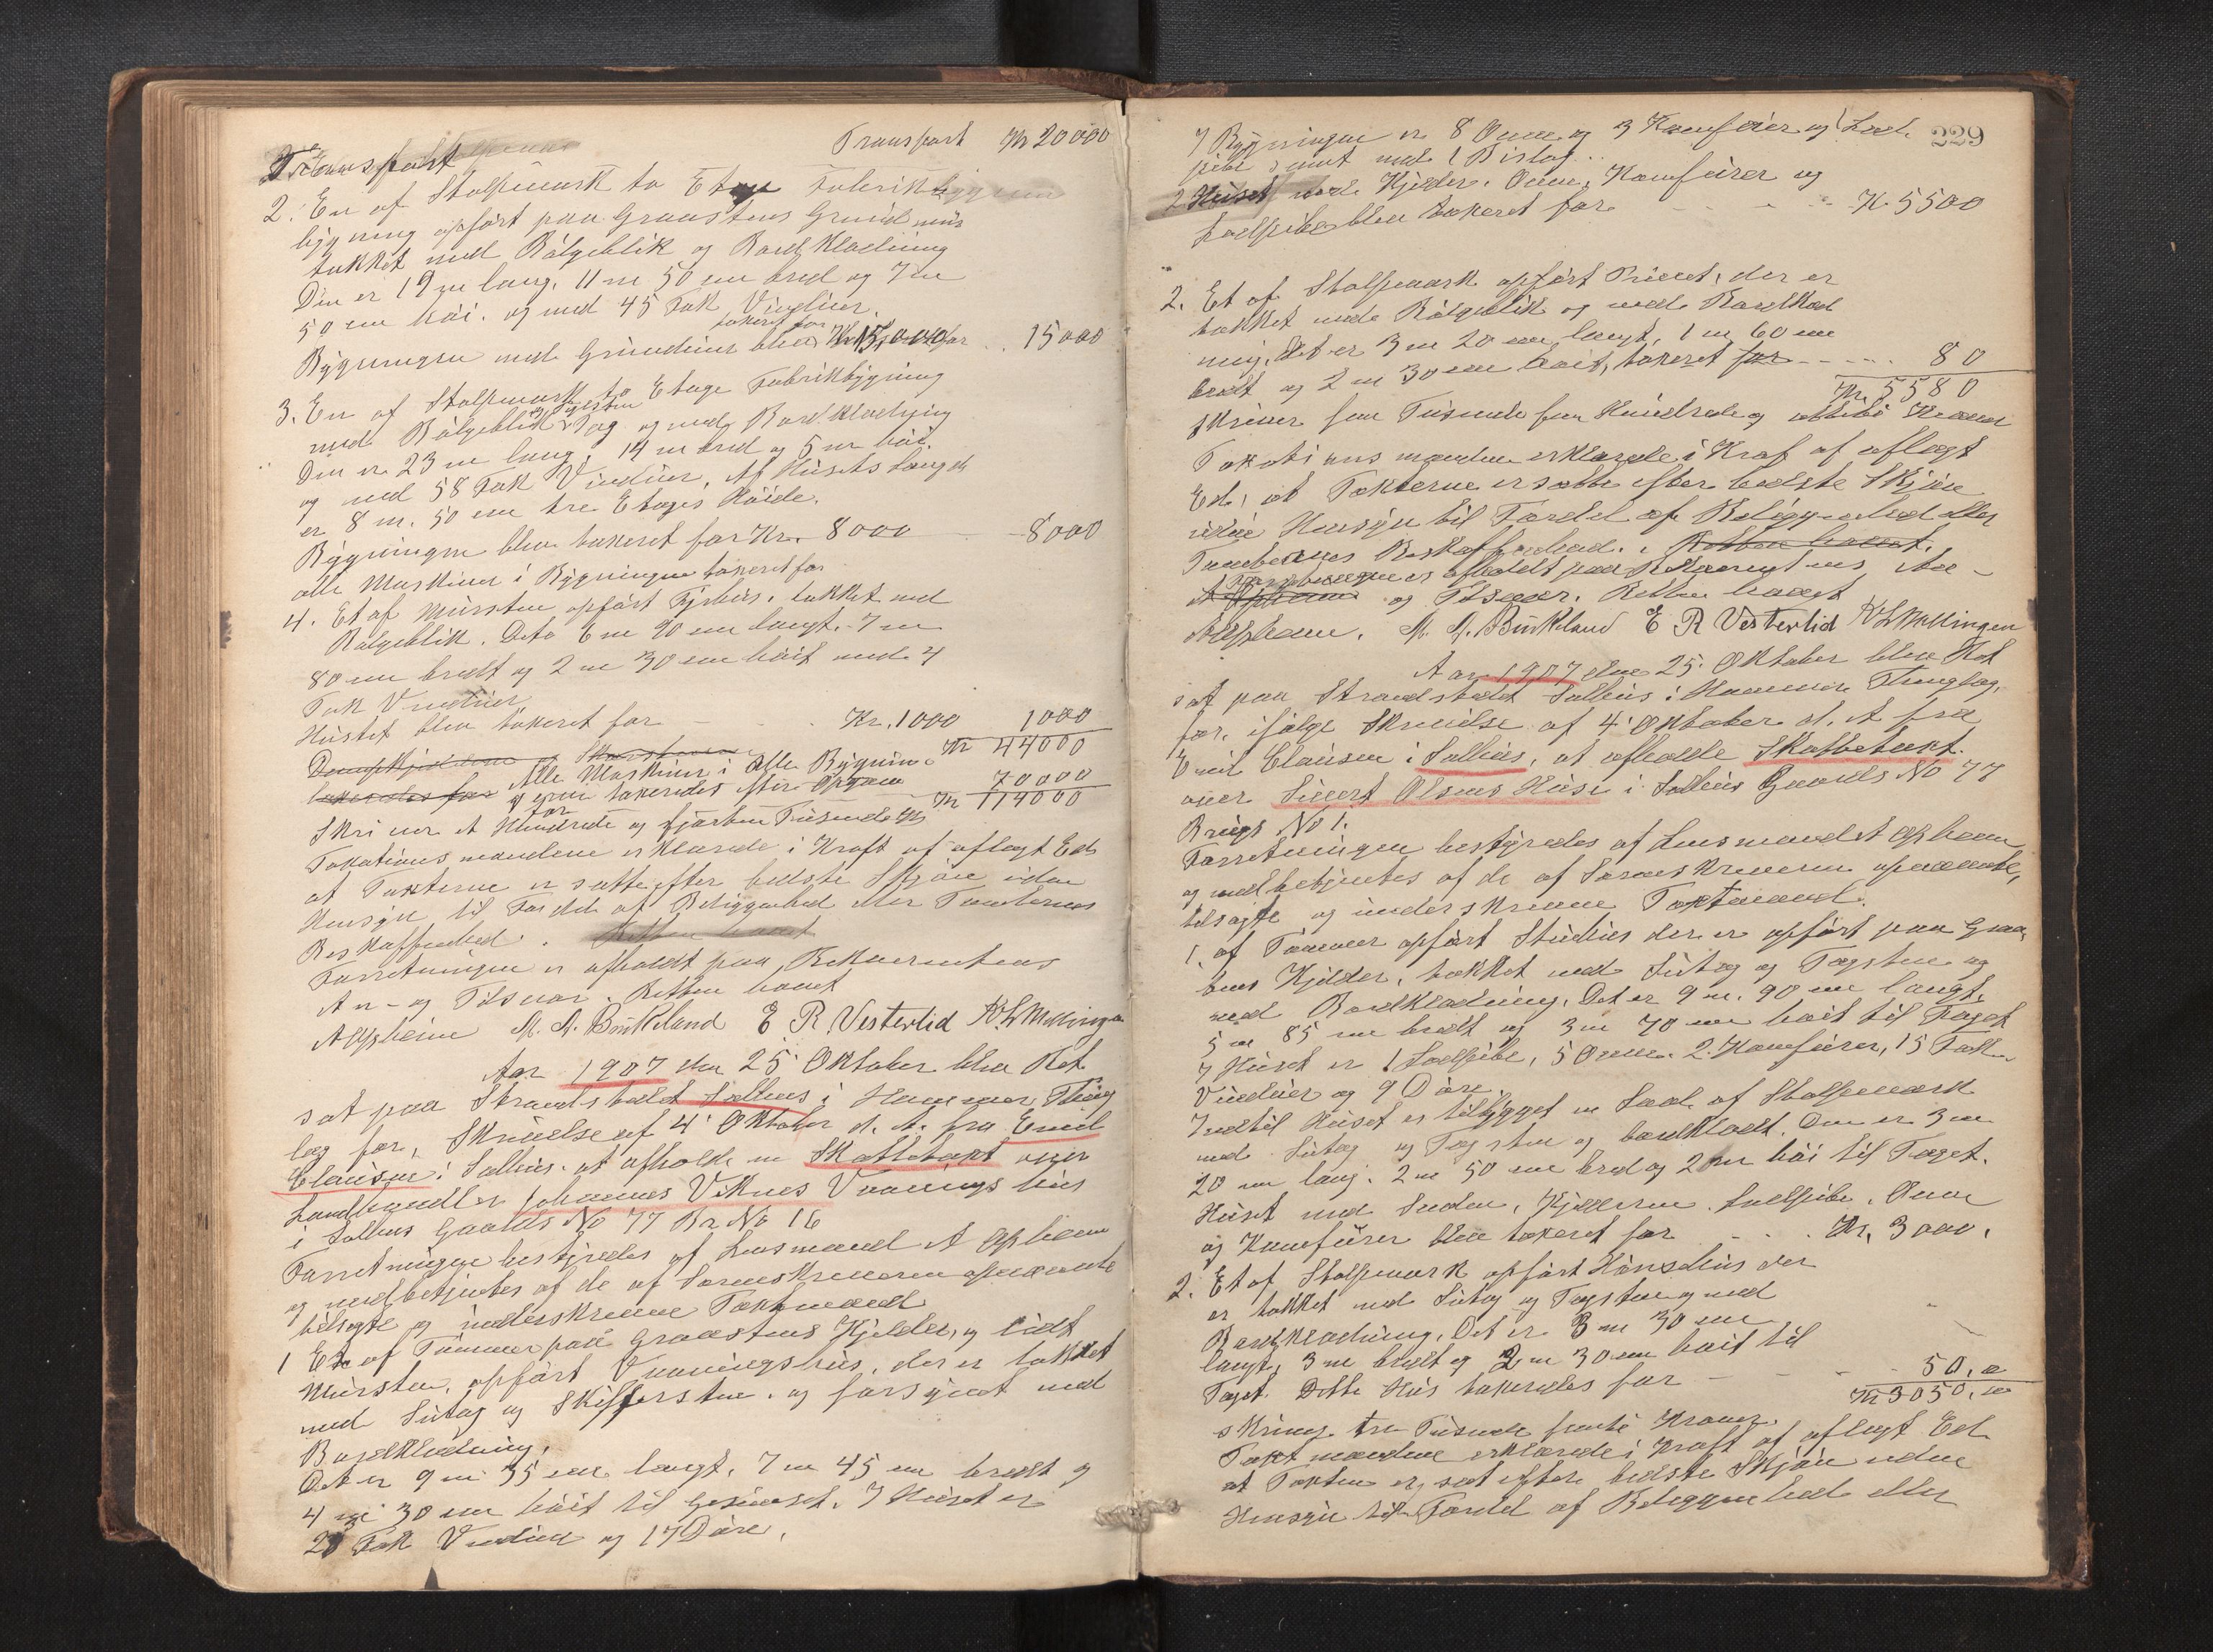 Transport Kr 20000
Transport
2. En af Stolpeværk to Etage Fabrikbyggnin
bygning opført paa Graastens Grundmur
tækket med Bølgeblik og Bordklædning
Den er 19 m lang, 11 m 50 cm bred og 7 m
50 cm høi. og med 45 Fak Vinduer.
takseret for
Bygningen med Grundmur blev Kr. 15,000 for .. 15000
3. En af Stolpeværk to Etage Fabrikbygning
med Bølgeblik Tag og med Bordklædning
Den er 23 m lang, 14 m bred og 5 m høi.
og med 58 Fak Vinduer. Af Husets Længde
er 8 m. 50 cm tre Etages Høide.
Bygningen blev takseret for Kr. 8000 - 8000
alle Maskiner i Bygningen takseret for
4. Et af Mursten opført Fyrhus. tækket med
Bølgeblik. Dets 6 m 90 cm langt. 7 m
80 cm bredt og 2 m 30 cm høit med 4
Fak Vinduer
Huset blev takseret for - Kr. 1000 1000
Kr 44000
Dampkjedelen Skorstenen
Alle Maskiner i alle Bygnin-
takseredes for gerne takseredes efter Opgave 70000
Kr 114000
Skriver et Hundrede og fjorten Tusende Kr
Taxationsmændene erklærede i Kraft af aflagt Ed
at Taxterne er satte efter bedste Skjøn uden
Hensyn til Fordel af Beliggenhed eller Tomternes
Beskaffenhed. Retten hævet
Forretningen er afholdt paa Rekvirentens
An- og Tilsvar. Retten hævet
A Opheim M. A. Birkeland E R Vesterlid K L Mellingen
Aar 1907 den 25. Oktober blev Ret
sat paa Strandstedet Salhus i Hammer Thing
lag for, Skrivelse af 4. Oktober d. A. fra Emil
Clausen i Salhus. at afholde en Skattetaxt over
Landhandler Johannes Viknes Vaaningshus
i Salhus Gaards No 77 Br. No 16
Forretningen bestyredes af Lensmand A Opheim
og medbetjentes af de af Sorenskriveren opnævnte
tilsagte og underskrevne Taxtmænd
1 Et af Tømmer paa Graastens Kjelder, og lidt
Mursten, opført Vaaningshus, der er tækket
med Sutag og Skifersten. og forsynet med
Bordklædning.
Det er 9 m 35 cm langt, 7 m 45 cm bredt og
4 m 30 cm høit til Gesimset. I Huset er
23 Fak Vinduer og 17 Døre.
229
I Bygningen er 8 Ovne og 3 Komfurer og 1 Lod-
pibe samt med 1 Bislag..
2 Huset med Kjelder. Ovne, Komfurer og
Lodpibe blev takseret for - - - K. 5500
2. Et af Stolpeværk opført Privet, der er
tækket med Bølgeblik og med Bordklæd
ning. Det er 3 m 20 cm langt, 1 m 60 cm
bredt og 2 m 30 cm høit, takseret for - - - 80
Kr. 5580
skriver fem Tusende fem Hundrede og otteti Kroner
Taxationsmændene erklærede i Kraft af aflagt
Ed, at Taxterne er satte efter bedste Skjøn
uden Hensyn til Fordel af Beliggenhed eller
Tomternes Beskaffenhed. Retten hævet.
Forretningen er afholdt paa Rekvirentens An-
A Opheim og Tilsvar. Retten hævet
A Opheim. M. A. Birkeland E R Vesterlid K L Mellingen
Aar 1907 den 25. Oktober blev Ret
sat paa Strandstedet Salhus i Hammer Thinglag,
for, ifølge Skrivelse af 4. Oktober d. A fra
Emil Clausen i Salhus, at afholde Skattetaxt
over Sivert Olsens Huse i Salhus Gaards No 77
Brugs No 1.
Forretningen bestyredes af Lensmand A Opheim
og medbetjentes af de af Sorenskriveren opnævnte,
tilsagte og underskrevne Taxtmænd.
1. af Tømmer opført Stuehus der er opført paa Graa-
stens Kjelder, tækket med Sutag og Tagsten og
med Bordklædning. Det er 9 m. 90 cm langt,
5 m 85 cm bredt og 3 m 70 cm høit til Taget
I Huset er 1 Lodpibe, 5 Ovne. 2 Komfurer, 15 Fak
Vinduer og 9 Døre.
Indtil Huset er tilbygget en Sval af Stolpeværk
med Sutag og Tagsten og bordklædt. Den er 3 m
20 cm lang. 2 m 50 cm bred og 2 m høi til Taget.
Huset med Svalen, Kjelderen. Lodpibe. Ovne
og Komfurer blev takseret for - - - Kr. 3000.
2. Et af Stolpeværk opført Hønsehus der
er tækket med Sutag og Tagsten og med
Bordklædning. Det er 3 m 30 cm
langt, 3 m bredt og 2 m 30 cm høit til
Taget. Dette Hus takseredes for - - - 50,00
Kr 3050,00
skriver tre Tusende femti Kroner.
Taxtmændene erklærede i Kraft af aflagt Ed
at Taxten er sat efter bedste Skjøn uden
Hensyn til Fordel af Beliggenhed eller